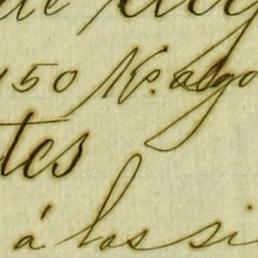 de
150 Ks. algo
tes
á los si